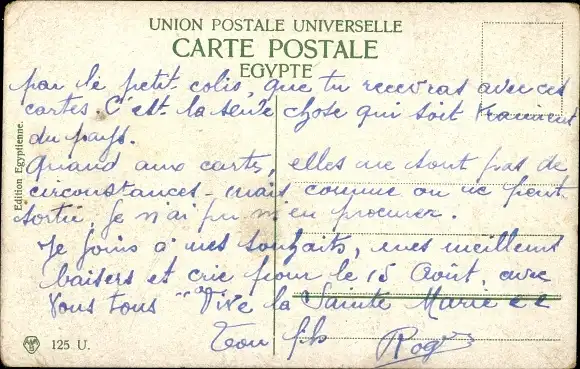 UNION POSTALE UNIVERSELLE
CARTE POSTALE
EGYPTE
par le petit colis, que tu recevras avec ces
cartes. C'est la seule chose qui soit vraiment
du pays.
Quand aux cartes, elles ne sont pas de
circonstances - mais comme on ne peut
sortir, je n'ai pu m'en procurer.
Je joins à mes souhaits, mes meilleurs
baisers et crie pour le 15 Août, avec
vous tous "Vive la Sainte Marie"
Ton fils Roger
Edition Egyptienne.
125. U.